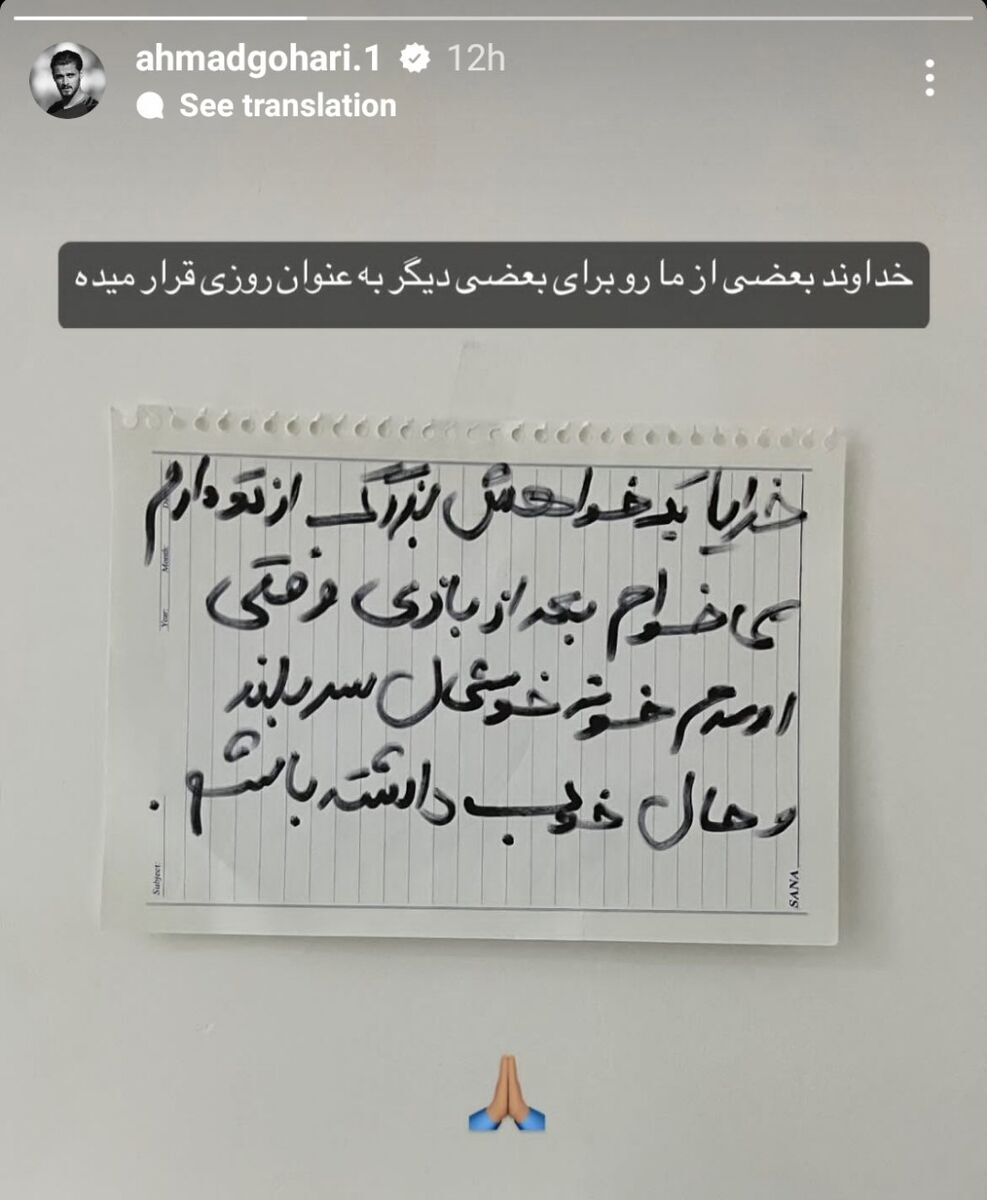 ahmadgohari.1 12h
See translation
خداوند بعضی از ما رو برای بعضی دیگر به عنوان روزی قرار میده
خدایا یک خواهش بزرگ از تو دارم
می خوام بعد از بازی وقتی
اومدم خونه خوشحال سربلند
و حال خوب داشته باشم.
Year: Month:
Subject:
SANA